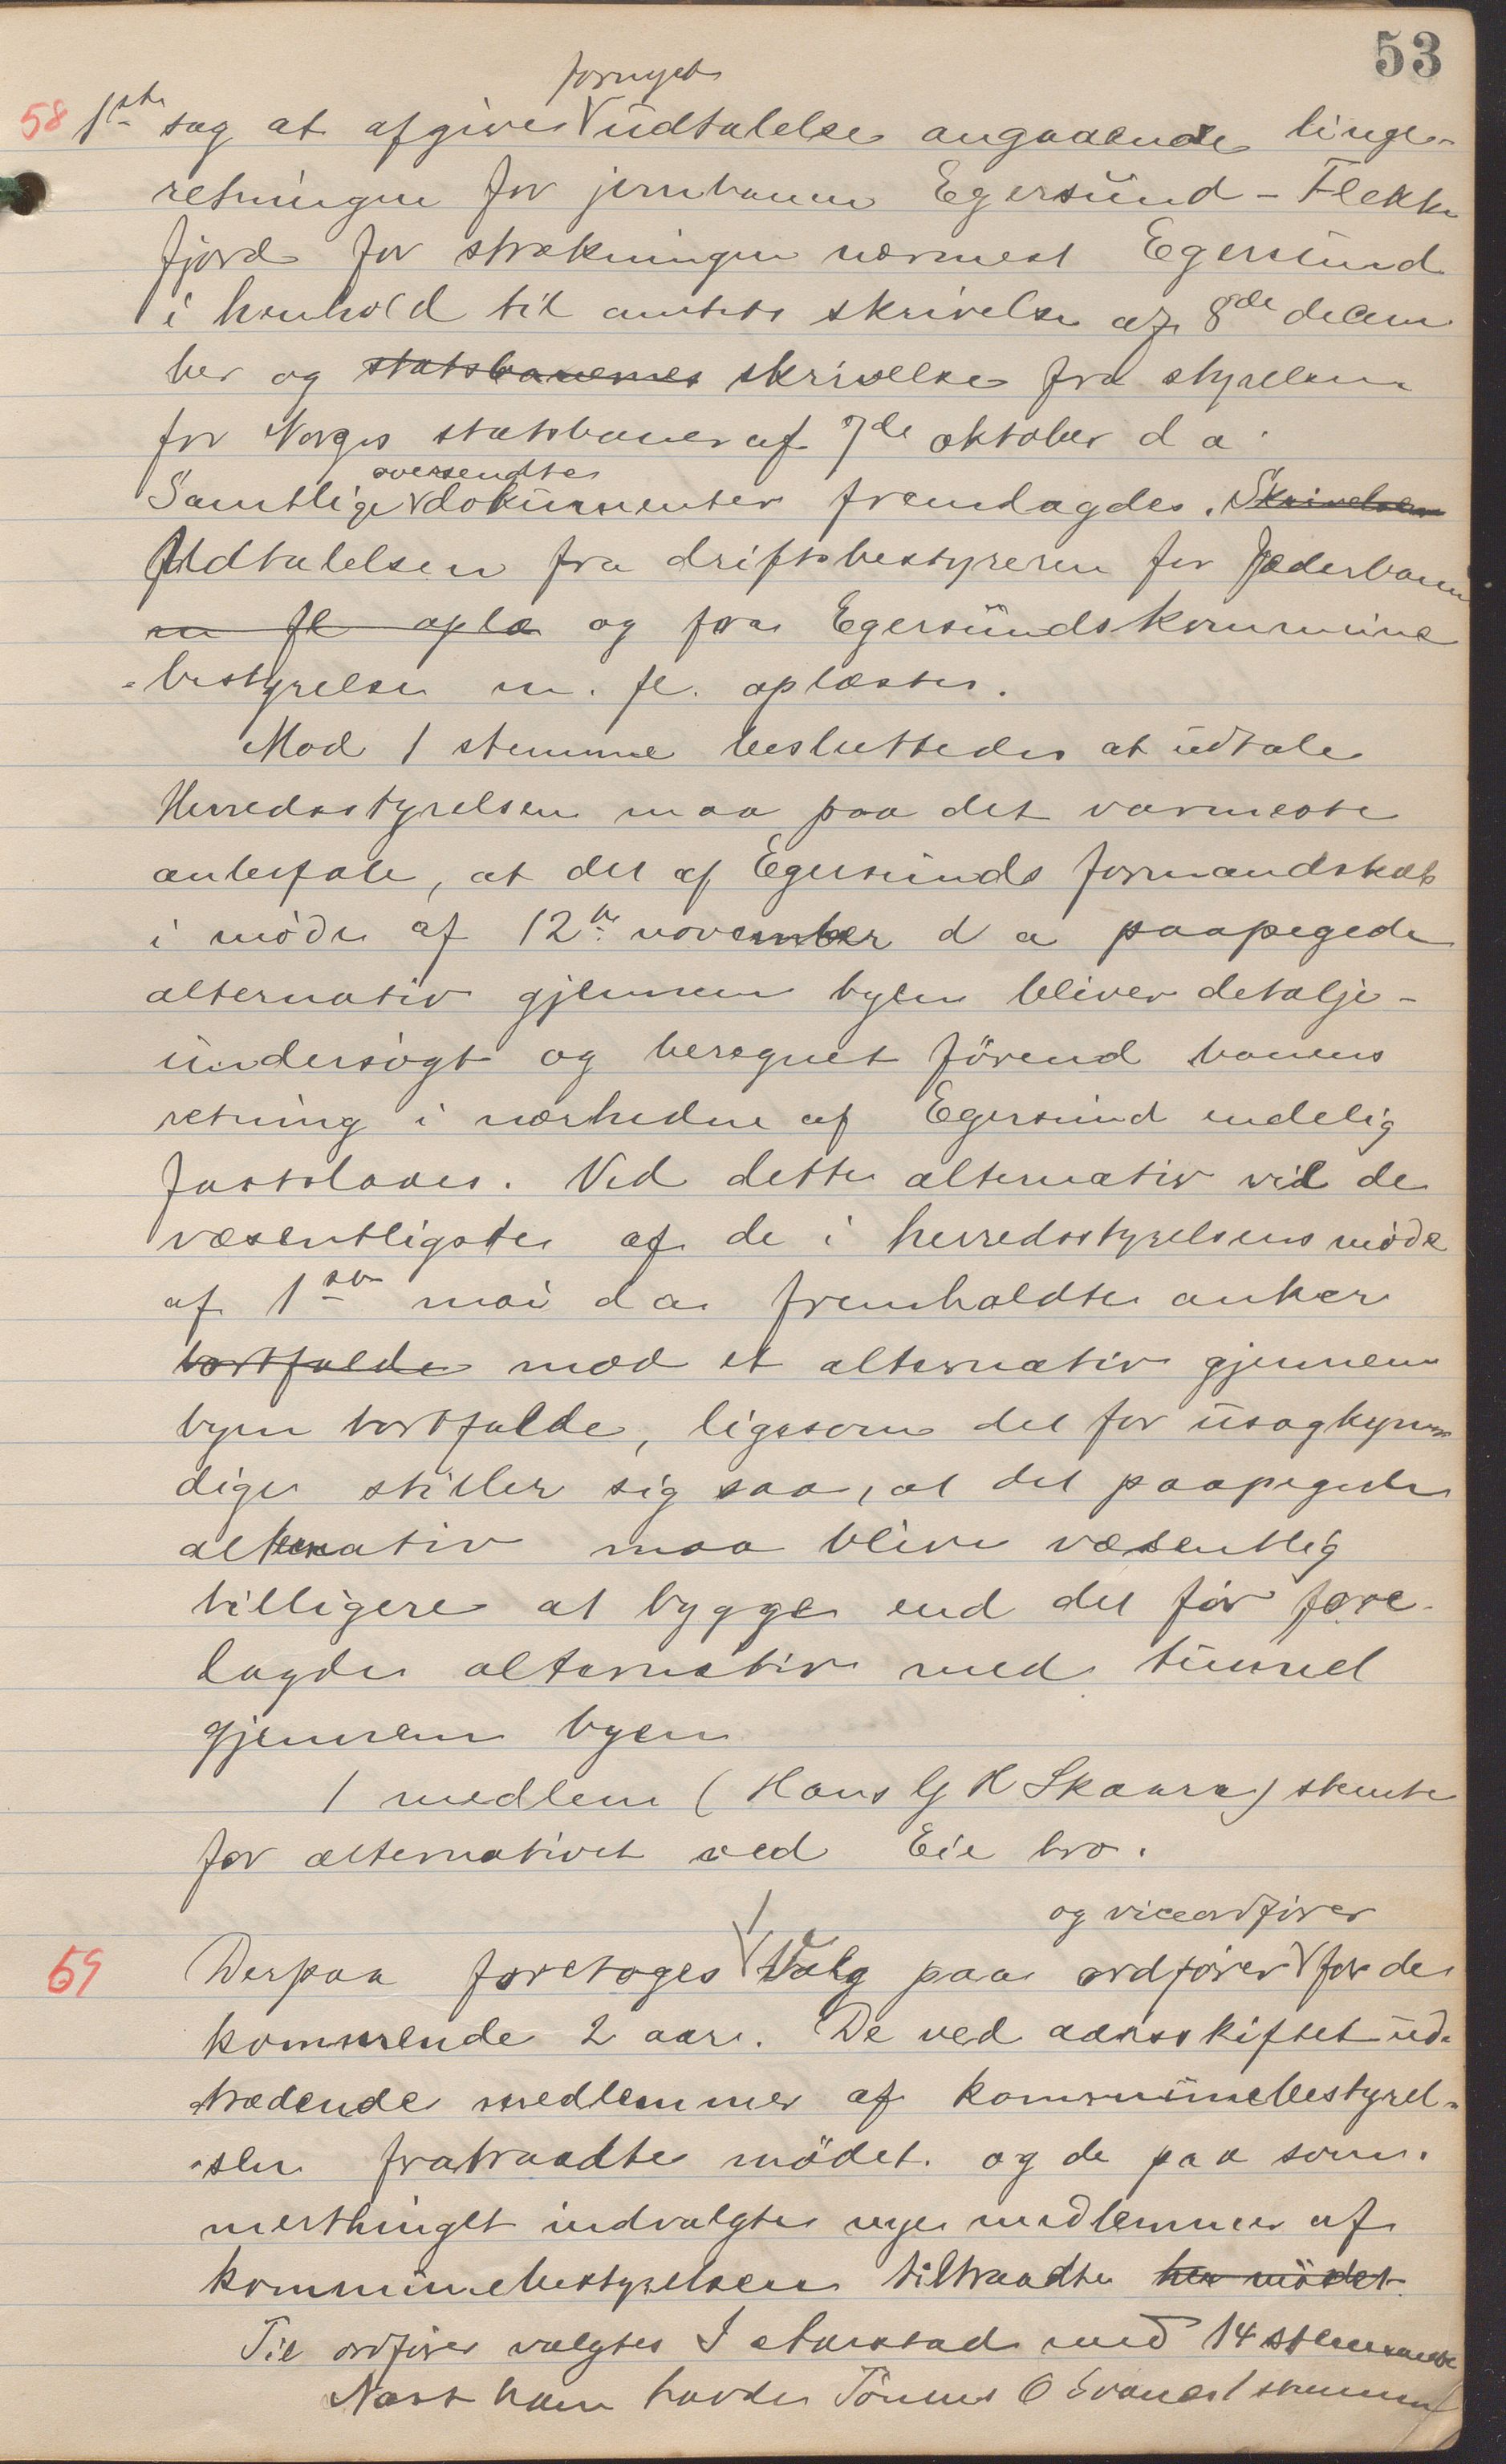 53
fornyet
58 1ste sag at afgive udtalelse angaaende linge-
retningen for jernbanen Egersund - Flekke
fjord for strækningen nærmest Egersund
i henhold til amtets skrivelse af 8de decem
ber og statsbanernes skrivelse fra styrelsen
for Norges statsbaner af 7de oktober d a.
oversendte
Samtlige dokumenter fremlagdes. Skrivelsen
Udtalelsen fra driftsbestyreren for Jæderbanen
m fl oplæ og fra Egersunds kommune
-bestyrelse m. fl. oplæstes.
Mod 1 stemme besluttedes at udtale
Herredsstyrelsen maa paa det varmeste
anbefale, at det af Egersunds formandskab
i møde af 12te november d a paapegede
alternativ gjennem byen bliver detalje-
undersøgt og beregnet førend banens
retning i nærheden af Egersund endelig
fastslaaes. Ved dette alternativ vil de
væsentligste af de i herredsstyrelsens møde
af 1ste mai d a fremholdte anker
bortfalde mod et alternativ gjennem
byen bortfalde, ligesom det for usagkyn-
dige stiller sig saa, at det paapegede
alternativ maa blive væsentlig
billigere at bygge end det før fore-
lagde alternativ med tunnel
gjennem byen
1 medlem (Hans G H Skaara) stemte
for alternativet ved Eie bro.
og viceordfører
59 Derpaa foretoges Valg paa ordfører for de
kommende 2 aar. De ved aarsskiftet ud-
trædende medlemmer af kommunebestyrel-
-sen fratraadte mødet. og de paa som-
merthinget indvalgte nye medlemmer af
kommunebestyrelsen tiltraadte her mødet
Til ordfører valgtes I med 14 stemmer
Næst ham havde Tønnes O Svanes 1 stemme